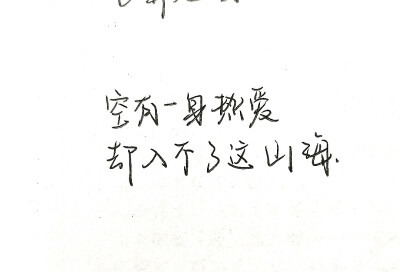 空有一身热爱
却入不了这山海.